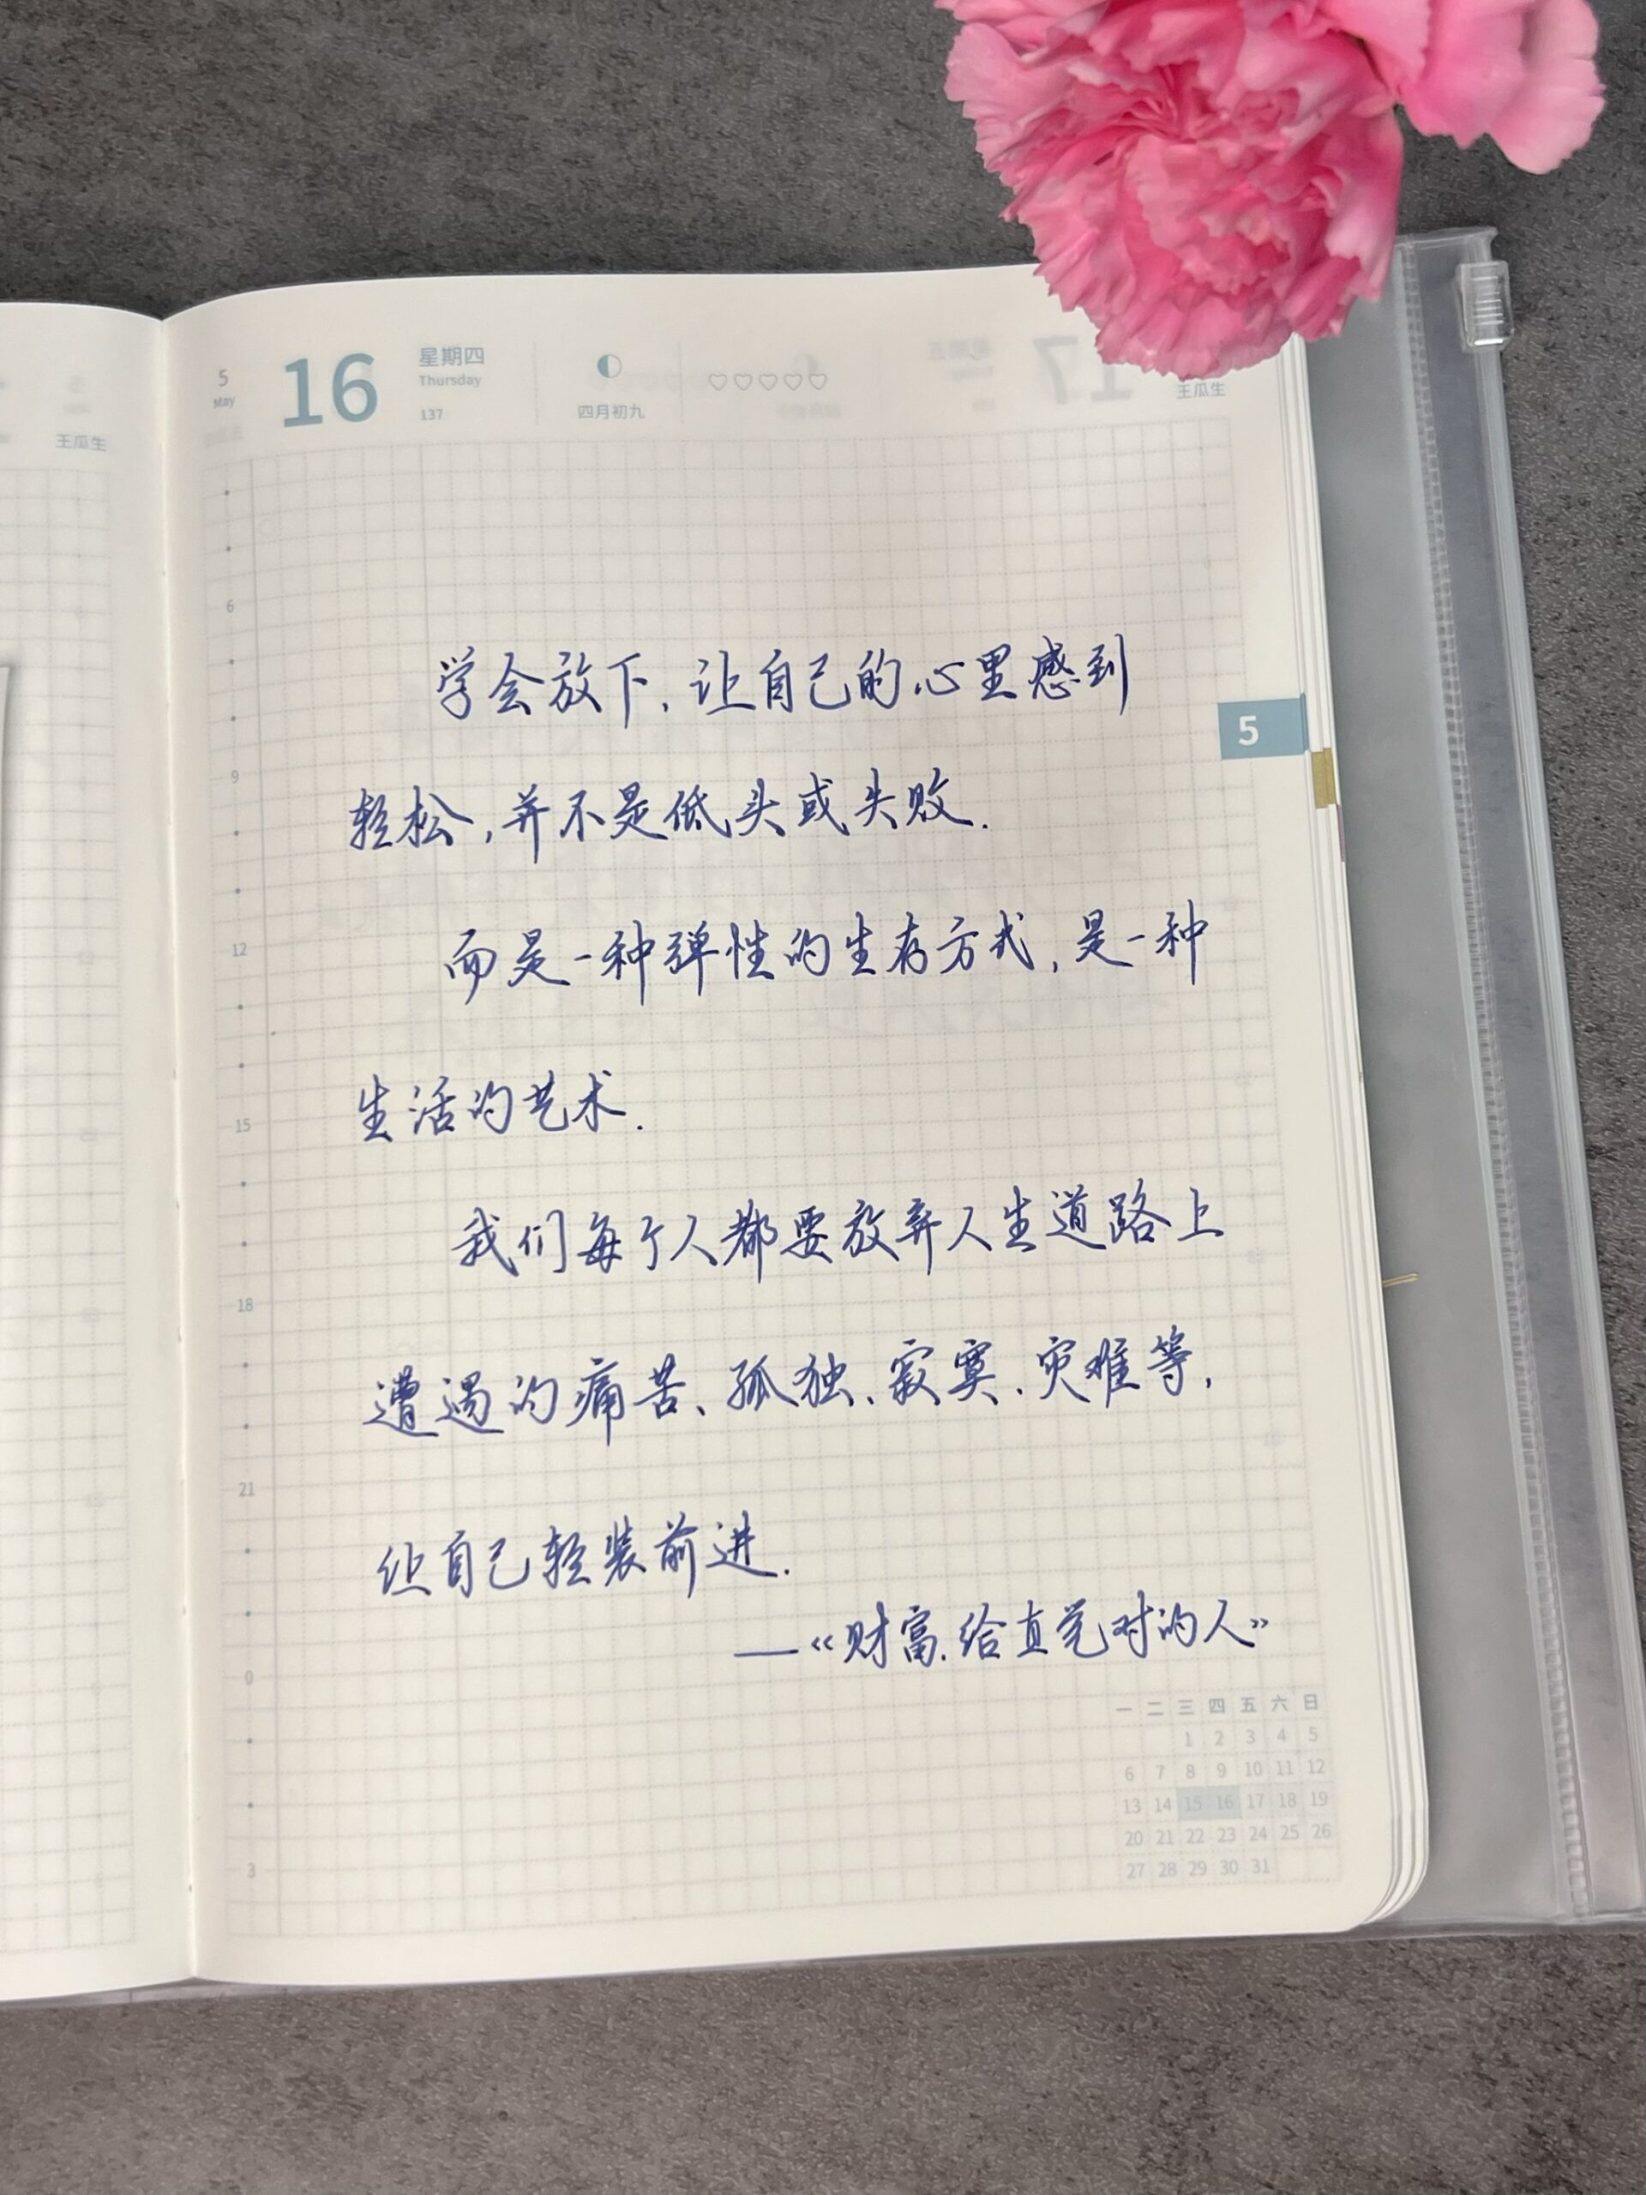 5
May
16
星期四
Thursday
137
四月初九
王瓜生
王瓜生
学会放下，让自己的心里感到
轻松，并不是低头或失败.
而是一种弹性的生存方式，是一种
生活的艺术.
我们每个人都要放弃人生道路上
遭遇的痛苦、孤独、寂寞、灾难等，
让自己轻装前进.
——《财富.给直觉对的人》
5
6
9
12
15
18
21
0
3
一 二 三 四 五 六 日
1 2 3 4 5
6 7 8 9 10 11 12
13 14 15 16 17 18 19
20 21 22 23 24 25 26
27 28 29 30 31